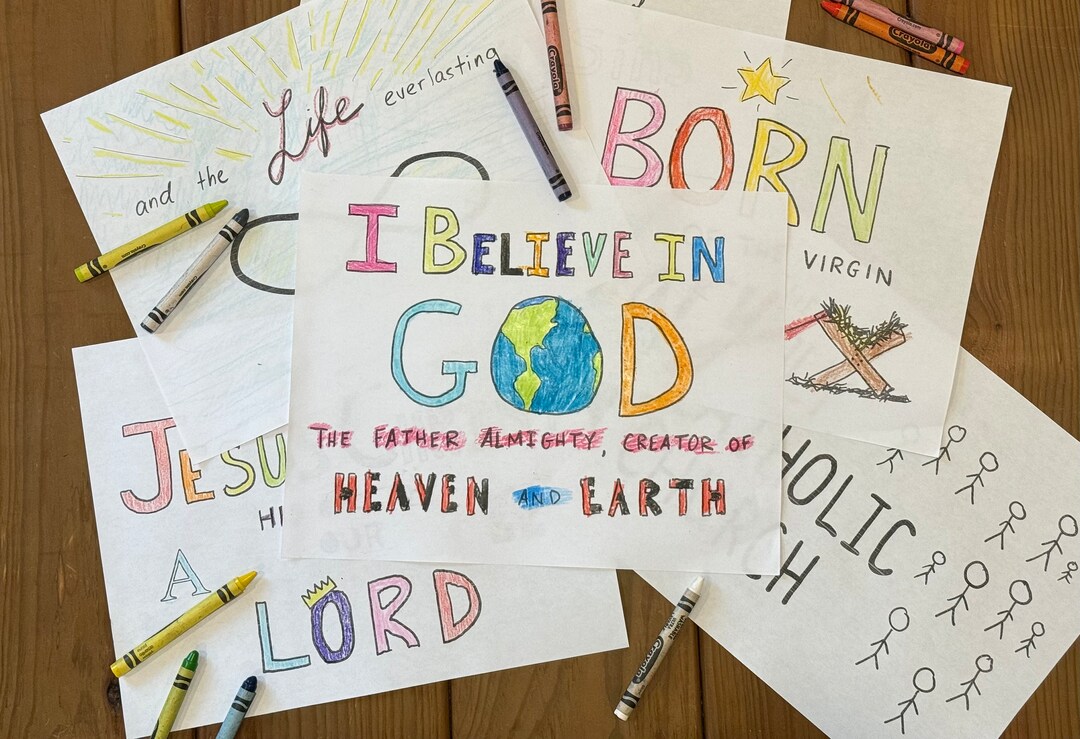 and the Life everlasting
BORN
VIRGIN
I BELIEVE IN
GOD
THE FATHER ALMIGHTY, CREATOR OF
HEAVEN AND EARTH
JESU
HI
A
LORD
HOLIC
CH
Crayola
Crayola
Crayola